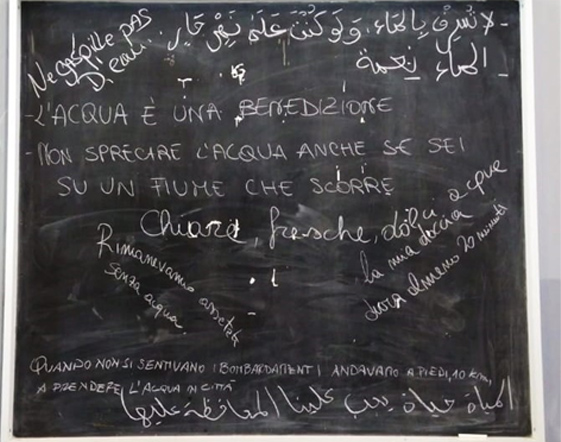 - لا تُسْرِفْ بِالمَاءِ، وَلَوْ كُنْتَ عَلَى نَهْرٍ جَارٍ.
- الماء نِعمة
Ne gaspille pas
D'eau.
- L'ACQUA È UNA BENEDIZIONE
- NON SPRECARE L'ACQUA ANCHE SE SEI
SU UN FIUME CHE SCORRE
Chiare, fresche, dolci acque
la mia doccia
dura almeno 20 minuti
Rimanevamo assetati
senza acqua.
QUANDO NON SI SENTIVANO I BOMBARDAMENTI ANDAVAMO A PIEDI, 10 km,
A PRENDERE L'ACQUA IN CITTÀ
المياة حياة يجب علينا المحافظة عليها